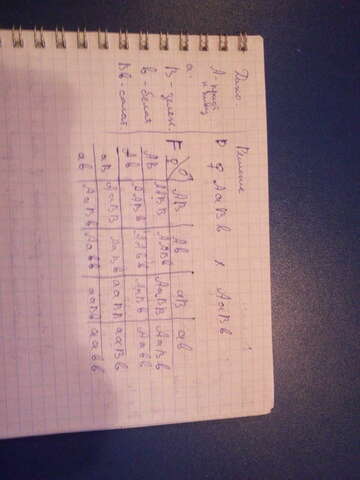 Дано: Решение
А - P ♀ АаВв х АаВв
а -
В - зелен. F ♀ ♂ АВ Ав аВ ав
в - белая АВ ААВВ ААВв АаВВ АаВв
Вв - салат Ав ААВв ААвв АаВв Аавв
аВ АаВВ АаВв ааВВ ааВв
ав АаВв Аавв ааВв аавв